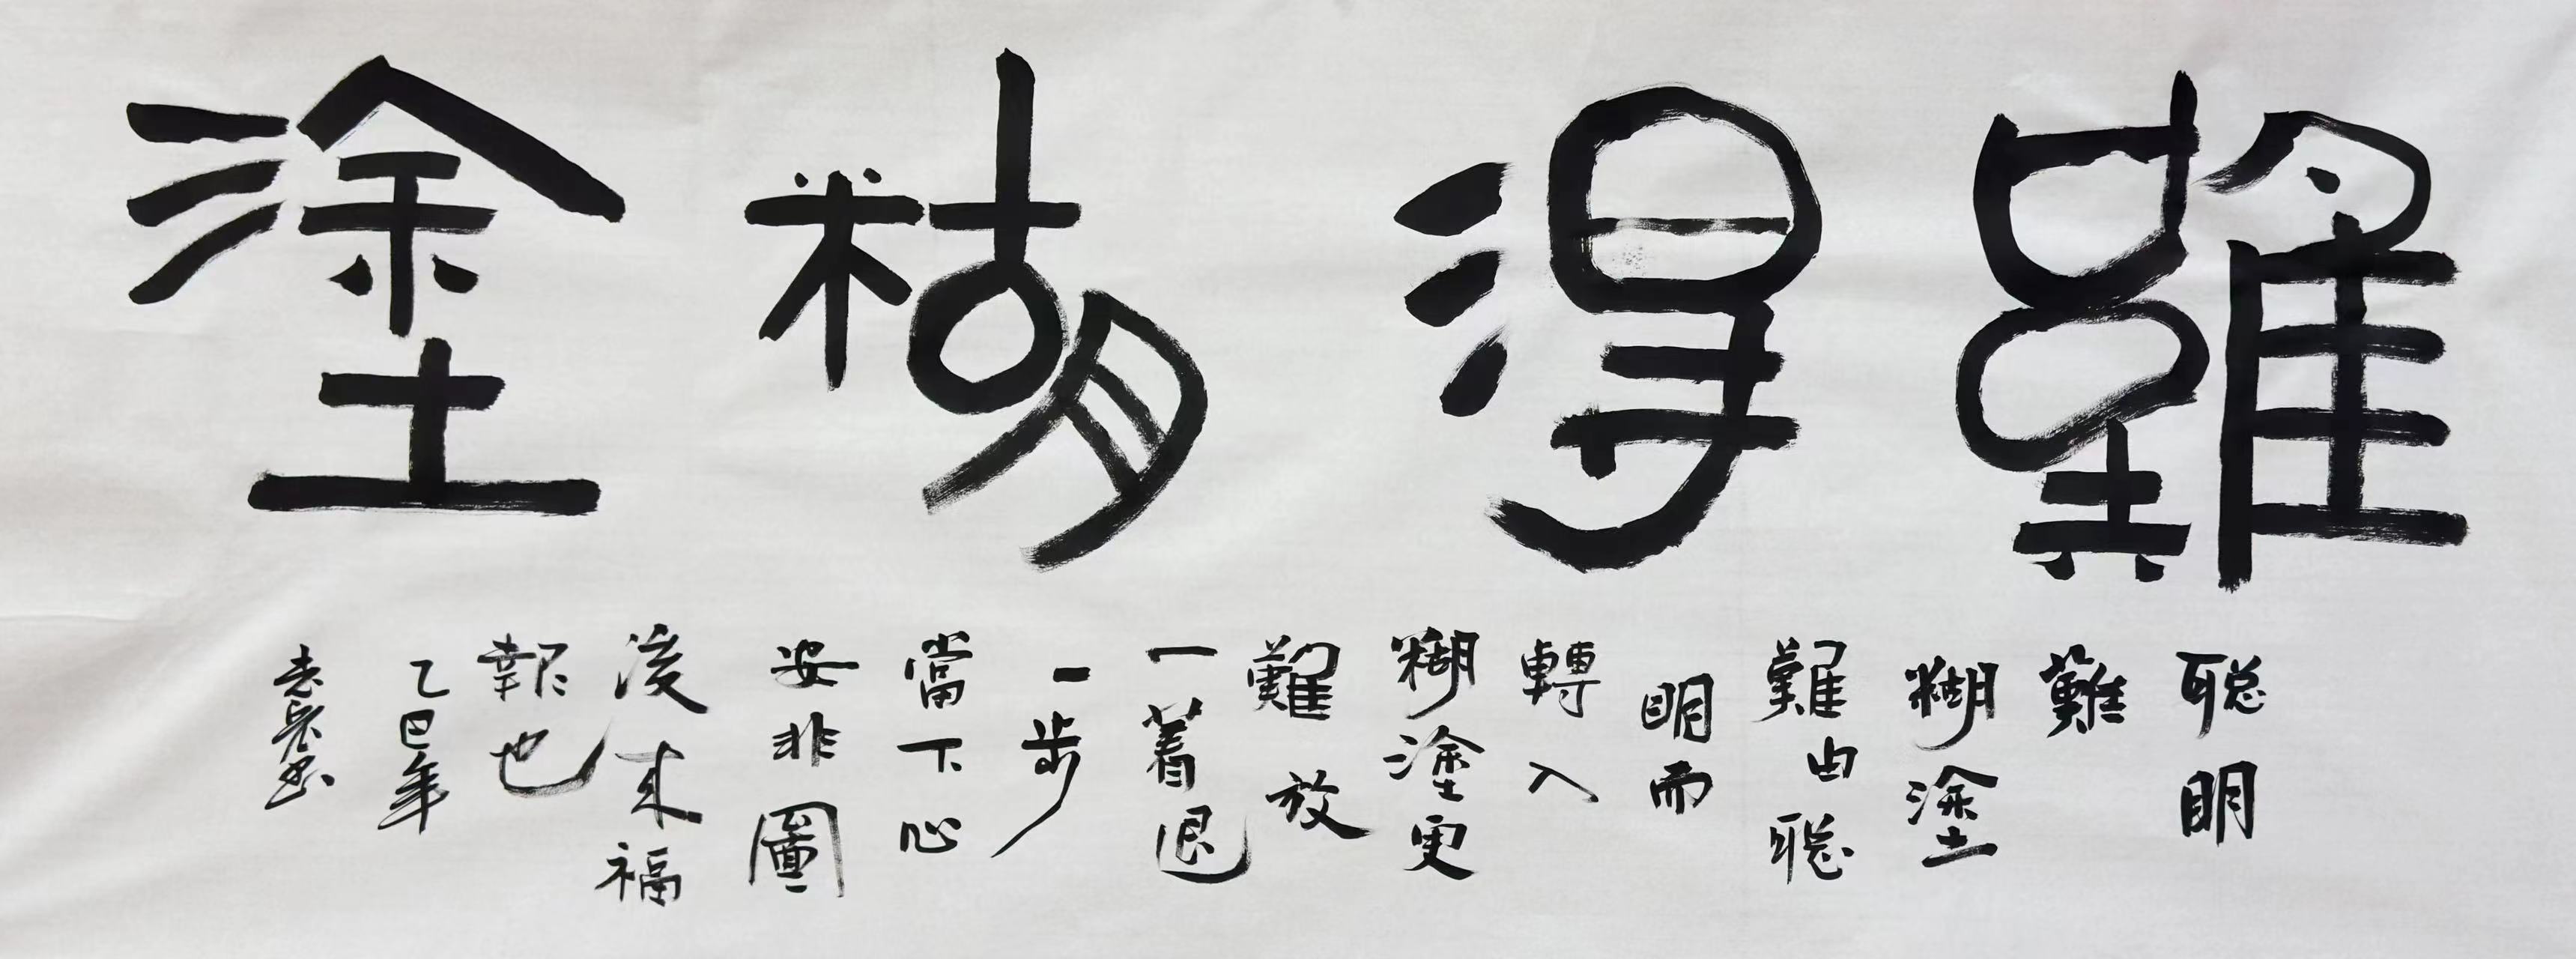 難得糊塗
聰明
難
糊塗
難由聰
明而
轉入
糊塗更
難放
一著退
一步
當下心
安非圖
後来福
報也
乙巳年